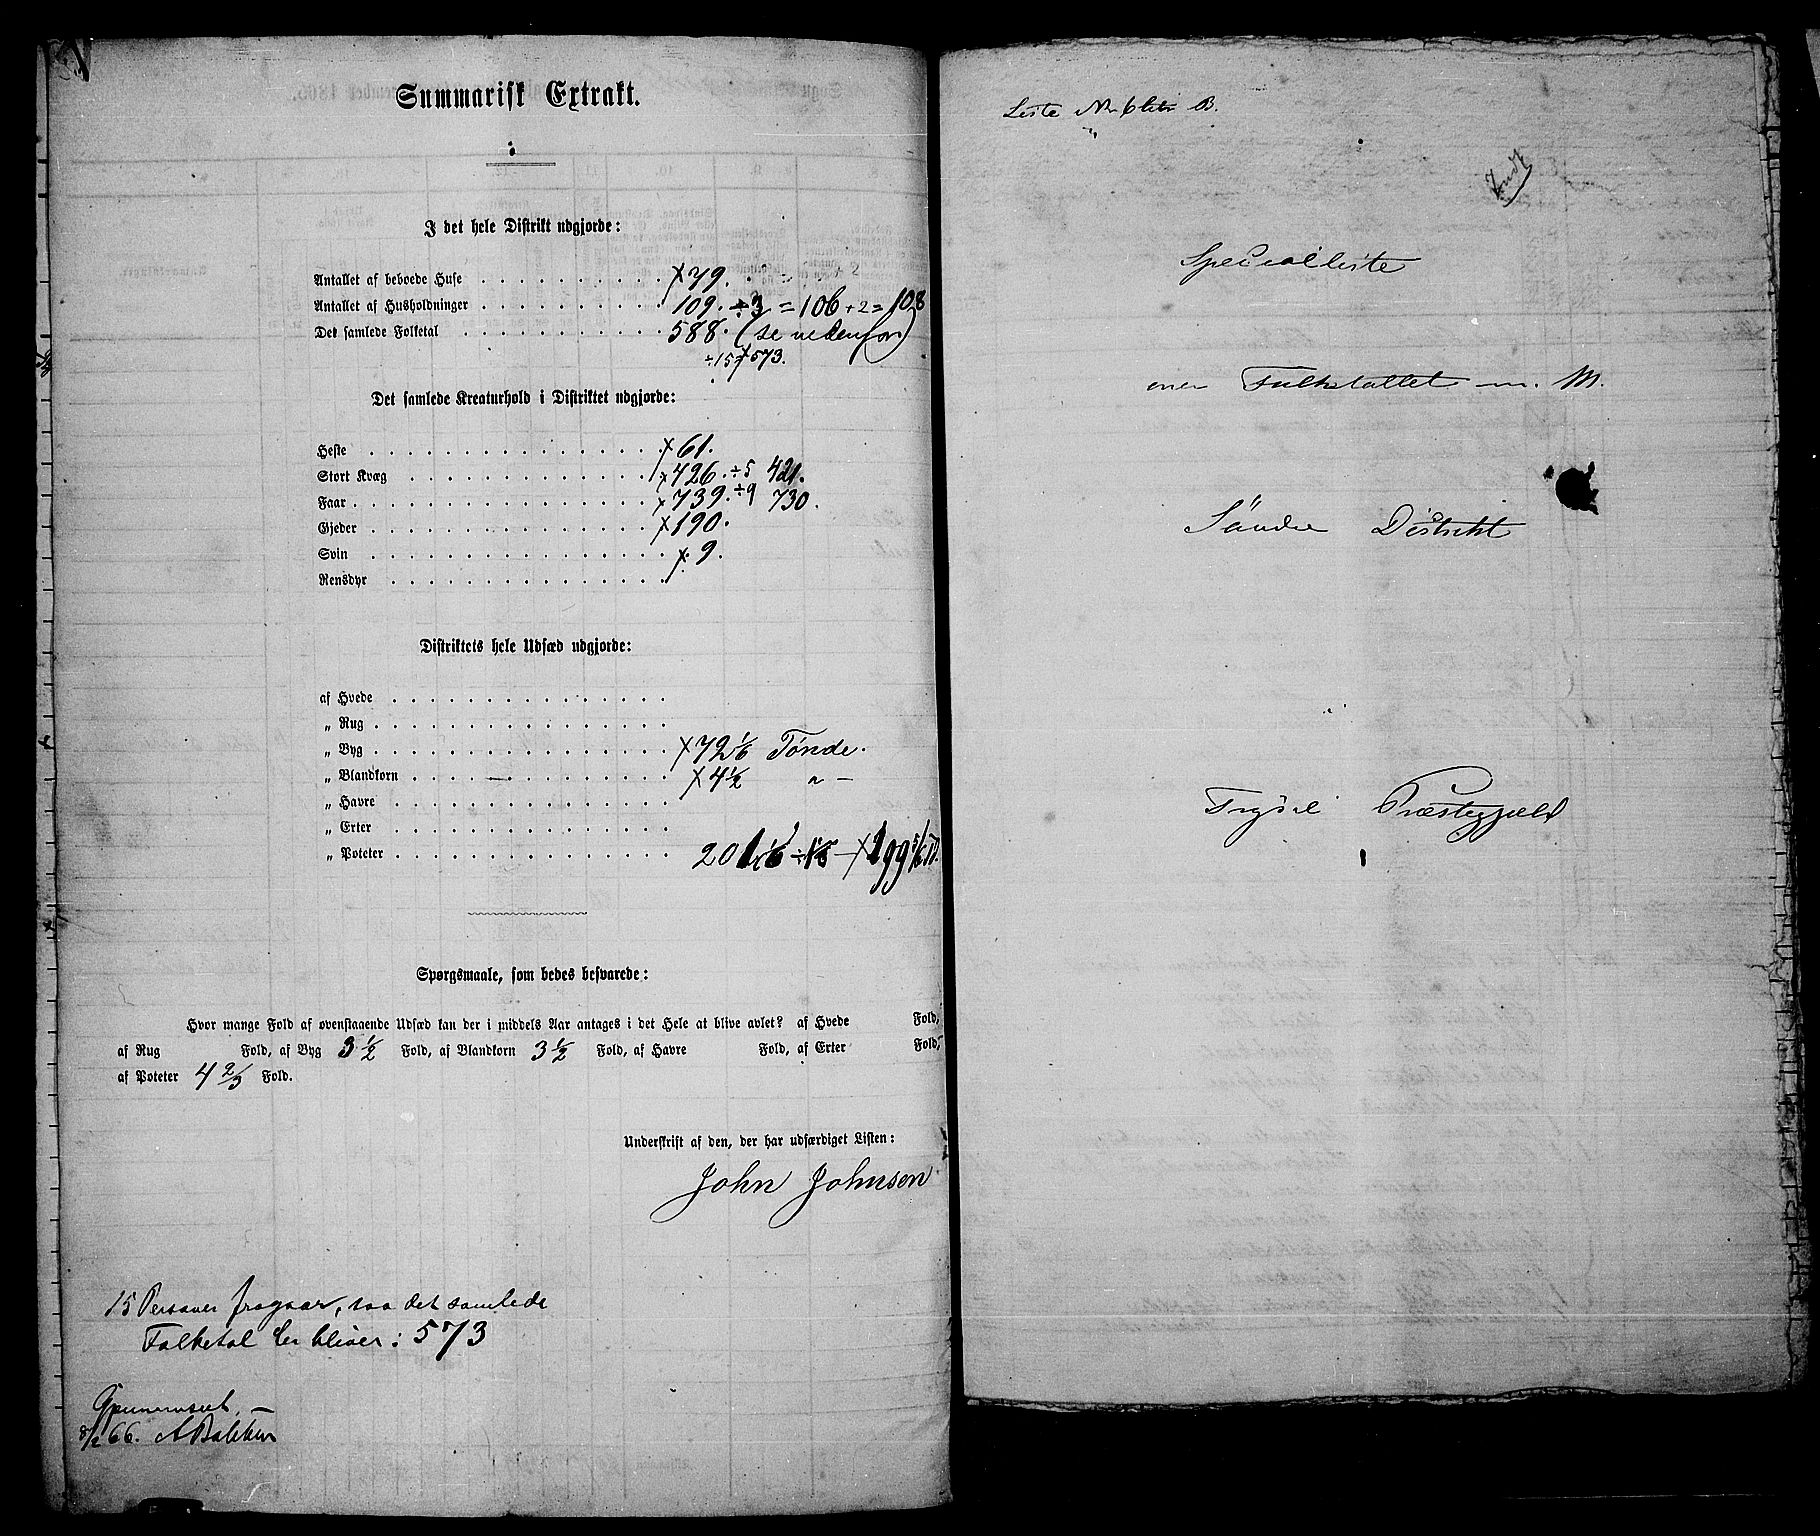 Summarisk Extrakt.
I det hele Distrikt udgjorde:
Antallet af beboede Huse . . . . . . . . . . × 79.
Antallet af Husholdninger . . . . . . . . . . 109. ÷ 3 = 106 + 2 = 108
Det samlede Folketal . . . . . . . . . . 588. (se nedenfor)
÷15 × 573.
Det samlede Kreaturhold i Distriktet udgjorde:
Heste . . . . . . . . . . × 61.
Stort Kvæg . . . . . . . . . . × 426. ÷5 421.
Faar . . . . . . . . . . × 739. ÷9 730.
Gjeder . . . . . . . . . . × 190.
Svin . . . . . . . . . . × 9.
Rensdyr . . . . . . . . . .
Distriktets hele Udsæd udgjorde:
af Hvede . . . . . . . . . .
„ Rug . . . . . . . . . .
„ Byg . . . . . . . . . . × 72 1/6 Tønde.
„ Blandkorn . . . . . . . . . . × 4 1/2 „ —
„ Havre . . . . . . . . . .
„ Erter . . . . . . . . . .
„ Poteter . . . . . . . . . . 201 1/6 ÷ × 199 5/6
Spørgsmaale, som bedes besvarede:
Hvor mange Fold af ovenstaaende Udsæd kan der i middels Aar antages i det Hele at blive avlet? af Hvede Fold,
af Rug Fold, af Byg 3 1/2 Fold, af Blandkorn 3 1/2 Fold, af Havre Fold, af Erter Fold,
af Poteter 4 2/3 Fold.
Underskrift af den, der har udfærdiget Listen:
John Johnsen
15 Personer fragaar, saa det samlede
Folketal her bliver: 573
Gjennemseet. —
8/2 66. A Bakken
Liste No 6 litr B.
Specialliste
over Folketallet m. M.
Søndre Distrikt
Trysil Præstegjæld